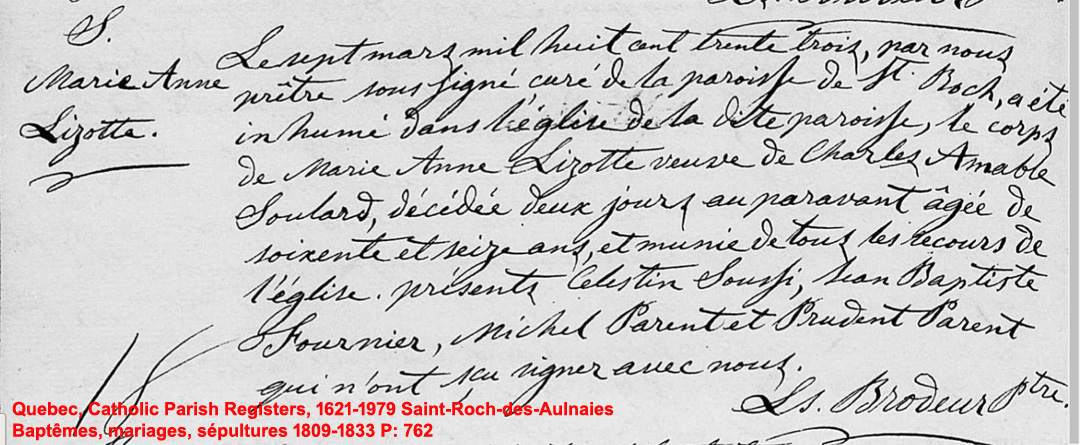 S.
Marie Anne
Lizotte.
Le sept mars mil huit cent trente trois, par nous
prêtre sous signé curé de la paroisse de St. Roch, a été
inhumé dans l'église de la dite paroisse, le corps
de Marie Anne Lizotte veuve de Charles Amable
Soulard, décédée deux jours auparavant âgée de
soixente et seize ans, et munie de tous les secours de
l'église. présents Celestin Soussi, Jean Baptiste
Fournier, Michel Parent et Prudent Parent
qui n'ont scu signer avec nous.
Ls. Brodeur Ptre.
Quebec, Catholic Parish Registers, 1621-1979 Saint-Roch-des-Aulnaies
Baptêmes, mariages, sépultures 1809-1833 P: 762